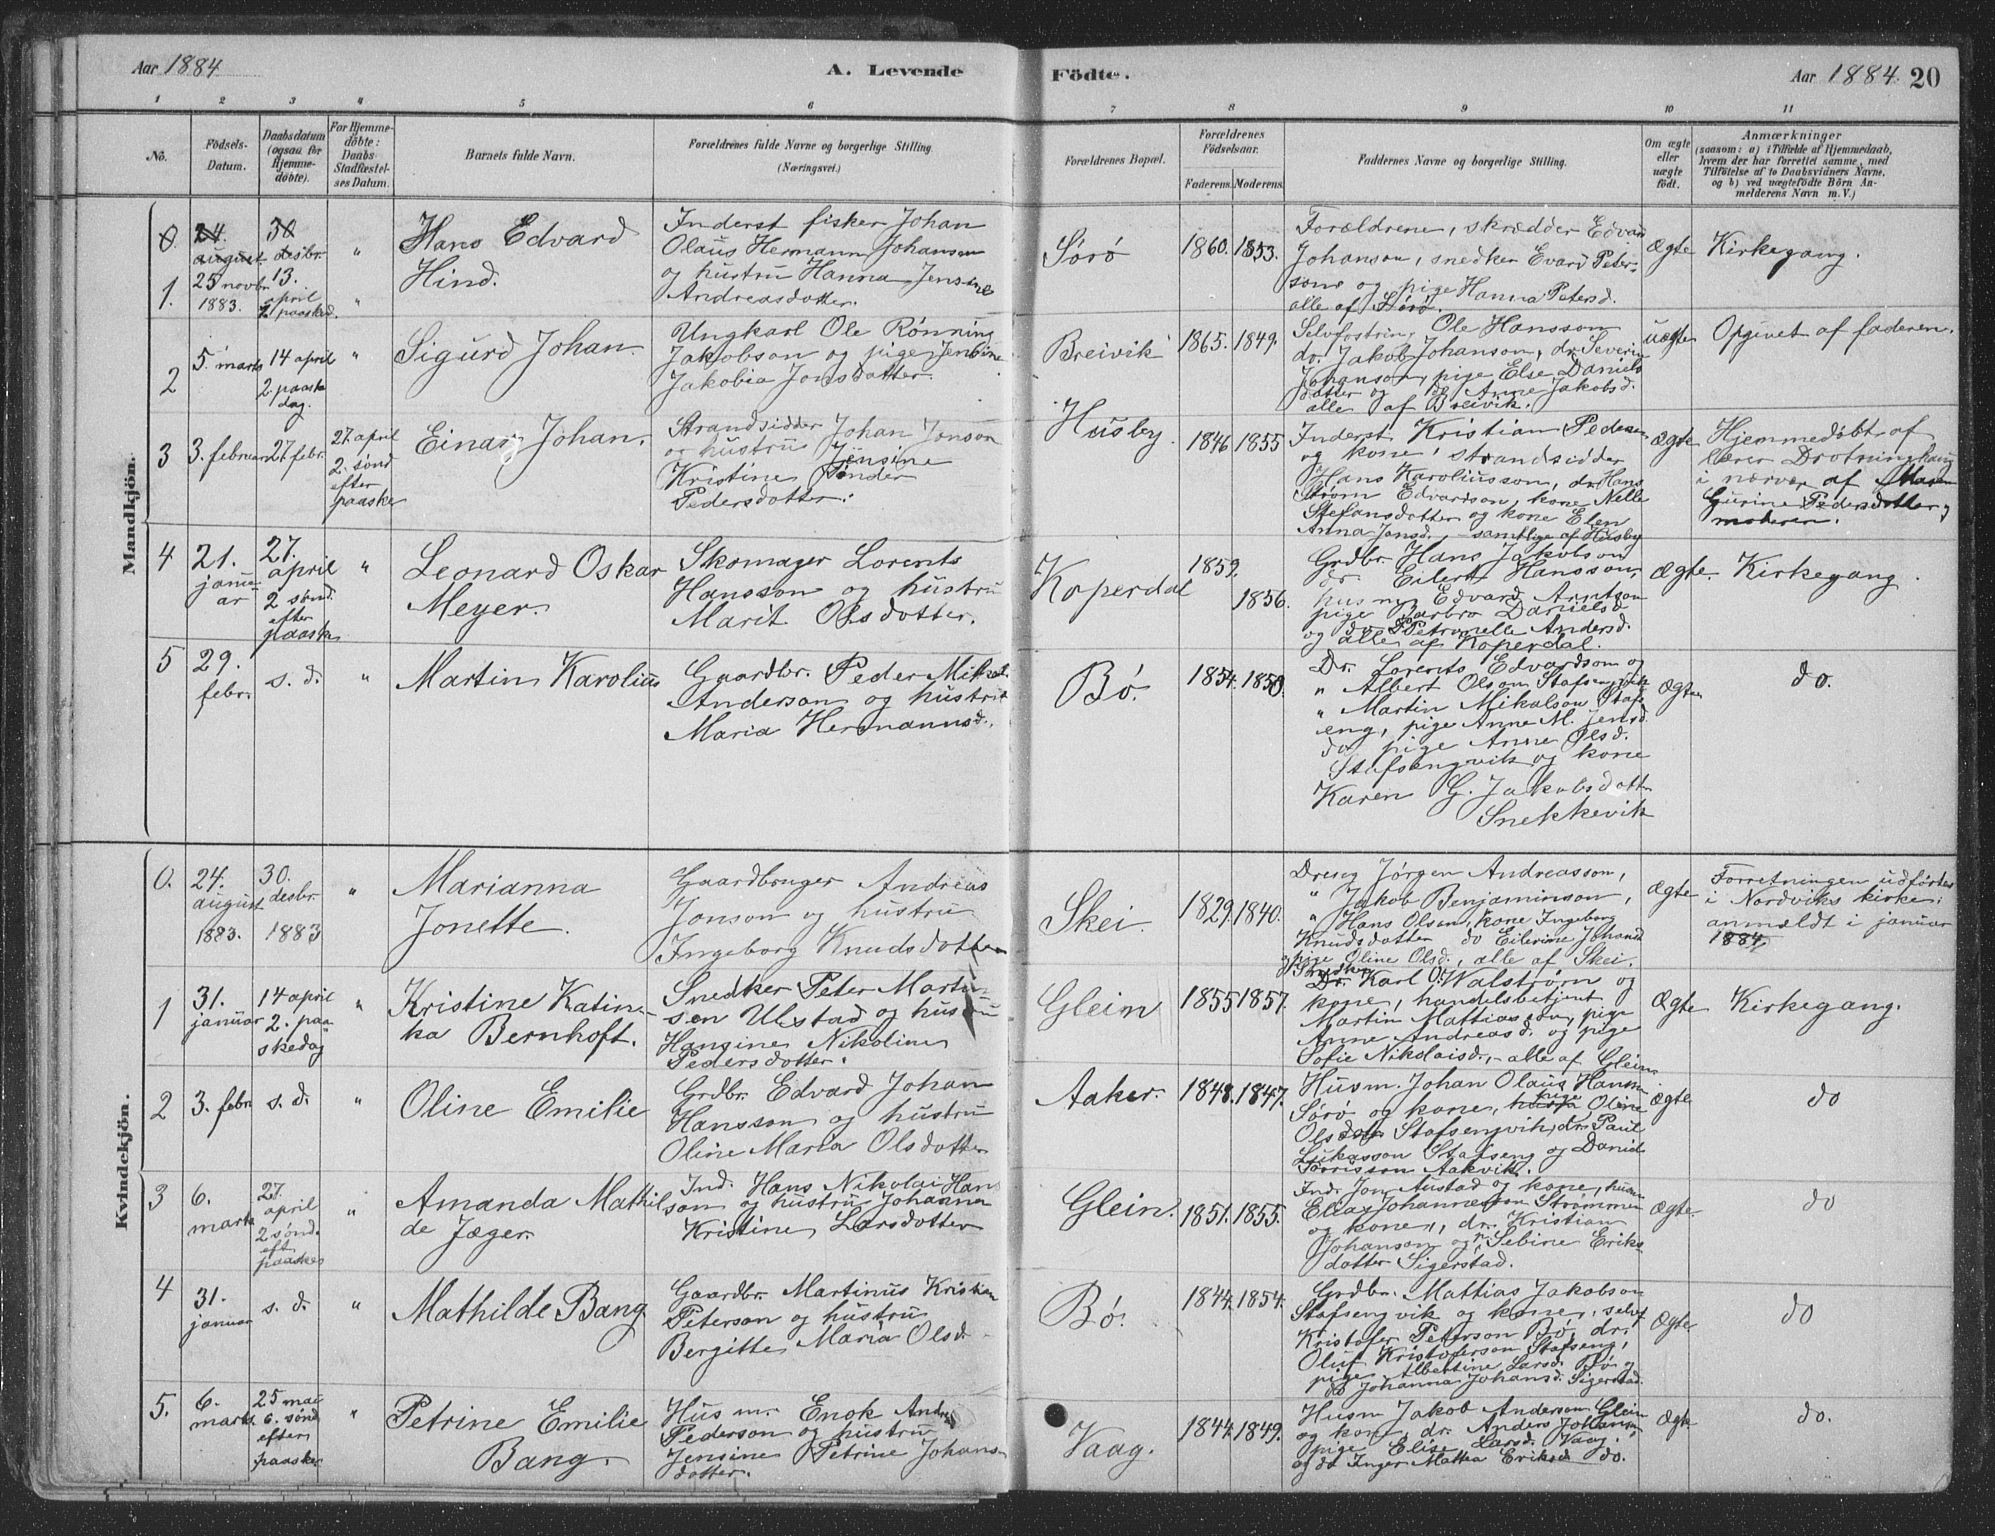 Aar 1884
A. Levende
Födte.
Aar 1884. 20
1 2 3 4 5 6 7 8 9 10 11
No.
Födsels-
Datum.
Daabsdatum
(ogsaa for
Hjemme-
døbte).
For Hjemme-
döbte:
Daabs-
Stadfæstel-
ses Datum.
Barnets fulde Navn.
Forældrenes fulde Navne og borgerlige Stilling.
(Næringsvei.)
Forældrenes Bopæl.
Forældrenes
Födselsaar.
Faderens. Moderens.
Faddernes Navne og borgerlige Stilling.
Om ægte
eller
uægte
födt.
Anmærkninger
(saasom: a) i Tilfælde af Hjemmedaab,
hvem der har forrettet samme, med
Tilföielse af to Daabsvidners Navne,
og b) ved uægtefödte Börn An-
melderens Navn m. V.)
Mandkjön.
0.
24.
august
30
desbr.
1.
25 novbr
1883.
13.
april
2 paasked.
"
Hans Edvard
Hind.
Inderst fisker Johan
Olaus Hermann Johanson
og hustru Hanna Jensine
Andreasdotter.
Sørø
1860. 1853.
Forældrene, skrædder Edvard
Johanson, snedker Evard Peter-
sons og pige Hanna Petersd.
alle af Sørø.
Ægte
Kirkegang.
2
5. marts
14 april
2. paaske
dag.
"
Sigurd Johan.
Ungkarl Ole Rønning
Jakobson og pige Jensine
Jakobia Jonsdotter.
Breivik
1865. 1849.
Ole Hansson
dr. Jakob Johanson, dr. Severin
Johanson, pige Else Daniels
dotter og do Anne Jakobsd.
alle af Breivik.
uægte
Opgivet af faderen.
3
3. februar
27. febr.
27. april
2. sønd
efter
paaske
Einar Johan.
Strandsidder Johan Jonson
og hustru Jensine
Kristine Sønder
Pedersdotter.
Husby
1846 1855
Inderst Kristian Pedersen
og kone, strandsidder
Hans Karoliusson, dr. Hans
Strøm Edvardson, kone Nelle
Stefansdotter og kone Elen
Anna Jensd. - samtlige af Husby
Ægte
Hjemmedøbt af
lærer Drotninghaug
i nærvær af Maren
Gurine Pedersdotter og
moderen.
4
21.
janu-
ar
27.
april
2 sønd.
efter
paaske
"
Leonard Oskar
Meyer.
Skomager Lorents
Hansson og hustru
Marit Olsdotter.
Koperdal
1859.
1856.
Grdbr. Hans Jakobson
dr. Eilert Hansson,
husm. Edvard Arntson
pige Barbro Danielsd
og do Petronelle Andersd.
alle af Koperdal.
Ægte.
Kirkegang.
5
29.
febr.
s. d.
"
Martin Karolius
Gaardbr. Peder Mikal
Anderson og hustru
Maria Hermannsd.
Bø.
1854. 1850.
Dr. Lorents Edvardson og
" Albert Olson Stafsengvik
" Martin Mikalson Stafs-
eng, pige Anne M. Jensd.
do pige Anne Olsd.
Stafsengvik og kone
Karen G. Jakobsdotter
Snekkevik
Ægte
do.
Kvindekjön.
0.
24.
august
1883.
30.
desbr.
1883
"
Marianna
Jonette.
Gaardbruger Andreas
Jonson og hustru
Ingeborg Knudsdotter
Skei.
1829. 1840.
Dreng Jørgen Andreasson,
" Jakob Benjaminson,
" Hans Olsen, kone Ingeborg
Knudsdotter do Eilerine Johansd
og pige Oline Olsd., alle af Skei.
Ægte
Forretningen udførtes
i Nordviks kirke;
anmældt i januar
1884.
1
31.
januar
14 april
2. paa
skedag
"
Kristine Katin-
ka Bernhoft.
Snedker Peter Martin
sen Ulstad og hustru
Hansine Nikoline
Pedersdotter.
Glein
1855 1857.
Snedker
Dr. Karl O. Walstrøm og
kone, handelsbetjent
Martin Mattiasson, pige
Anne Andreasd. og pige
Sofie Nikolaisd., - alle af Glein.
Ægte
Kirkegang.
2
3. febr.
s. d.
"
Oline Emilie
Grdbr. Edvard Johan
Hansson og hustru
Oline Maria Olsdotter
Aaker.
1848. 1847.
Husm. Johan Olaus Hansson
Sørø og kone, pige Oline
Olsdotter Stafsengvik, dr. Paul
Lukasson Stafseng og Daniel
Aakvik.
Ægte
do
3
6.
marts
27.
april
2 sønd.
eft
paaske
"
Amanda Mathil
de Jæger.
Ind. Hans Nikolai Han
son og hustru Johanna
Kristine Larsdotter
Glein.
1851. 1855.
Ind. Jon Austad og kone, husm
Elias Johanneson Strømmen
og kone, dr. Kristian
Johanson og p. Sebine Eriks
dotter Sigerstad.
Ægte.
do
4
31.
januar
s. d.
"
Mathilde Bang
Gaardbr. Martinus Kristian
Peterson og hustru
Bergitte Maria Olsd.
Bø.
1844. 1854.
Grdbr. Mattias Jakobson
Stafsengvik og kone, selvf
Kristofer Peterson Bø, dr.
Oluf Kristoferson Stafseng,
pige Albertine Larsd. Bø og
do Johanna Johansd. Sigerstad.
Ægte
do
5.
6.
marts.
25 mai
6. sønd
efter
paaske
"
Petrine Emilie
Bang.
Husm. Enok Andreas
Pederson og hustru
Jensine Petrine Johans-
dotter.
Vaag.
1844. 1849.
Husm Jakob Anderson Glein
og kone, dr. Anders Johanson
pige Elise Larsd. Vaag.
og do Inger Mattea Eriksd do.
Ægte
do.